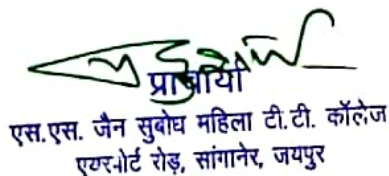 प्राचार्या
एस.एस. जैन सुबोध महिला टी.टी. कॉलेज
एयरपोर्ट रोड़, सांगानेर, जयपुर